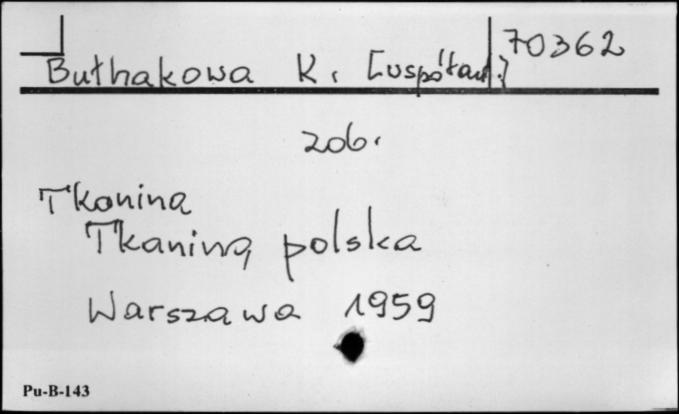 70362
Bułhakowa K. [współaut.]
zob.
Tkanina
Tkanina polska
Warszawa 1959
Pu-B-143